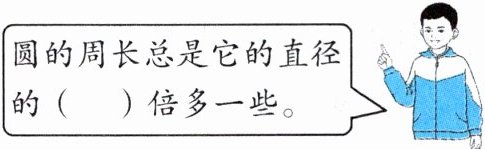 圆的周长总是它的直径
的（　　）倍多一些。